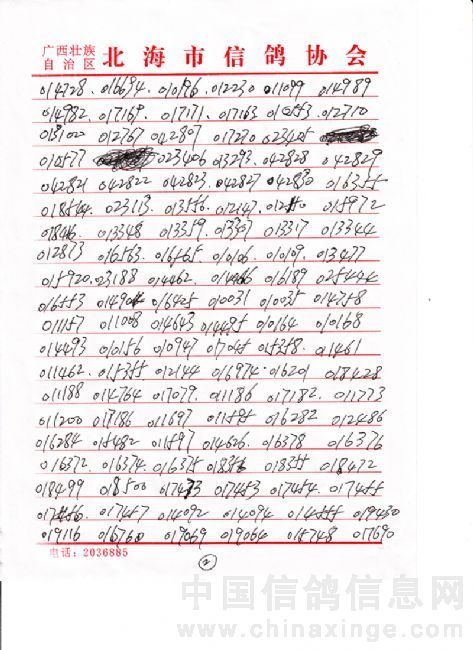 广西壮族自治区 北海市信鸽协会
014728. 016694. 010196. 012230 011099 014989
014982. 017169. 017171. 017163 010553. 012710
013100 012767 042807 017230 023405
010577 023406 013293. 042828 042829
042821 042822 042823. 042827 042830 016355
018564. 023113. 013556. 012147. 015972
013348 013359. 013307 013317 013344
012873 016563. 016565. 010106. 010109. 013477
015920. 023188 014462. 014466 016189 025444
016553 014904 016405 010031 010035 014758
011157 011008 014643 014495 010164 010168
014493 010156 010947 017045 015358. 011461
011462. 015355 012144 016974. 016201 018428
011188 014764 017079. 011186 017182. 011773
011200 017186 011697 011595 016282 012486
016284 015482 011597 014626. 016378 016376
016372. 016374. 016375 018356 018355 018472
018499 018500 017473 017453 017454. 017455
017456. 017457 014092 014094 014555 019430
019116 016760 019069 019064 015748 017690
电话：2036885
②
中国信鸽信息网
www.chinaxinge.com